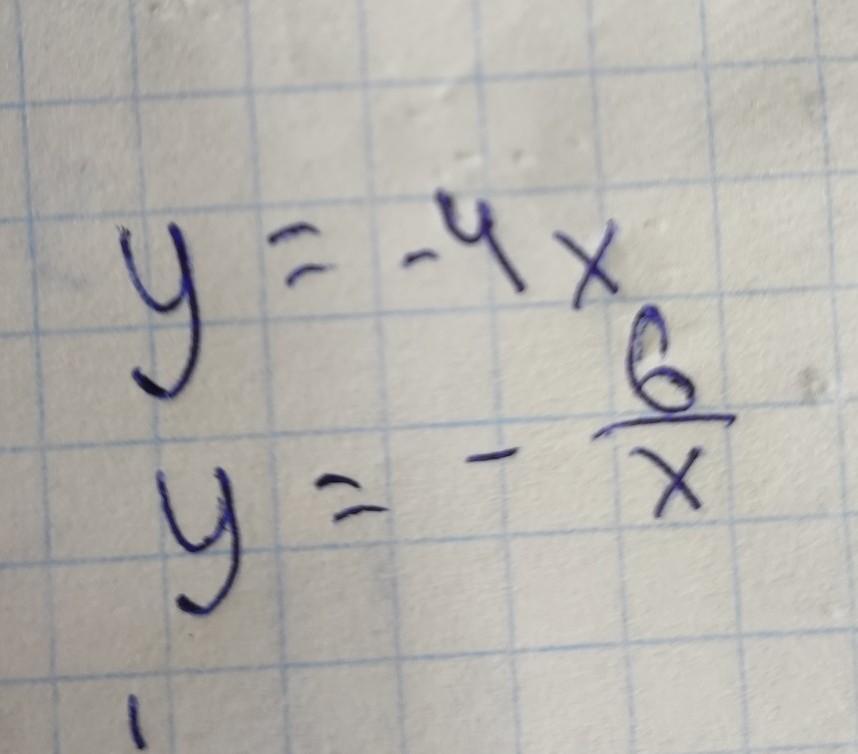 y = -4x
y = - 6/x